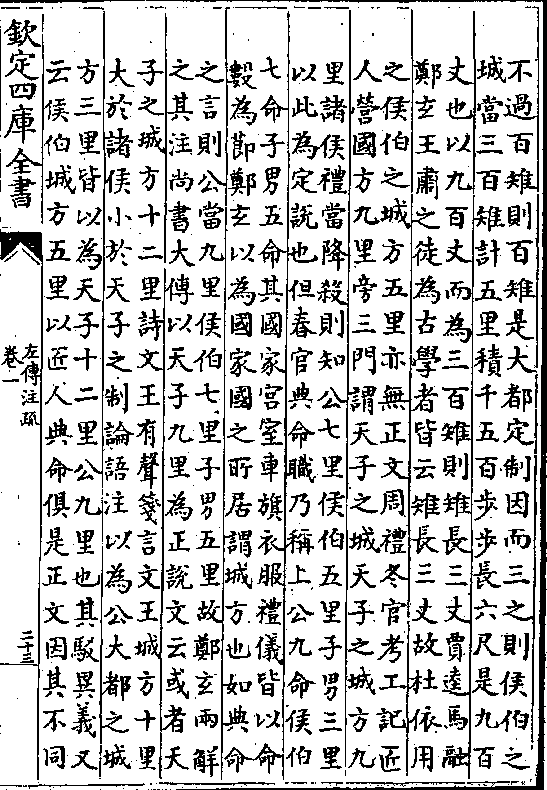 不過百雉則百雉是大都定制因而三之則侯伯之
城當三百雉計五里積千五百步步長六尺是九百
丈也以九百丈而為三百雉則雉長三丈賈逵馬融
鄭玄王肅之徒為古學者皆云雉長三丈故杜依用
之侯伯之城方五里亦無正文周禮冬官考工記匠
人營國方九里旁三門謂天子之城天子之城方九
里諸侯禮當降殺則知公七里侯伯五里子男三里
以此為定說也但春官典命職乃稱上公九命侯伯
七命子男五命其國家宮室車旗衣服禮儀皆以命
數為節鄭玄以為國家國之所居謂城方也如典命
之言則公當九里侯伯七里子男五里故鄭玄兩解
之其注尚書大傳以天子九里為正說又云或者天
子之城方十二里詩文王有聲箋言文王城方十里
大於諸侯小於天子之制論語注以為公大都之城
方三里皆以為天子十二里公九里也其駁異義又
云侯伯城方五里以匠人典命俱是正文因其不同
欽定四庫全書
左傳注疏
卷一
二十三